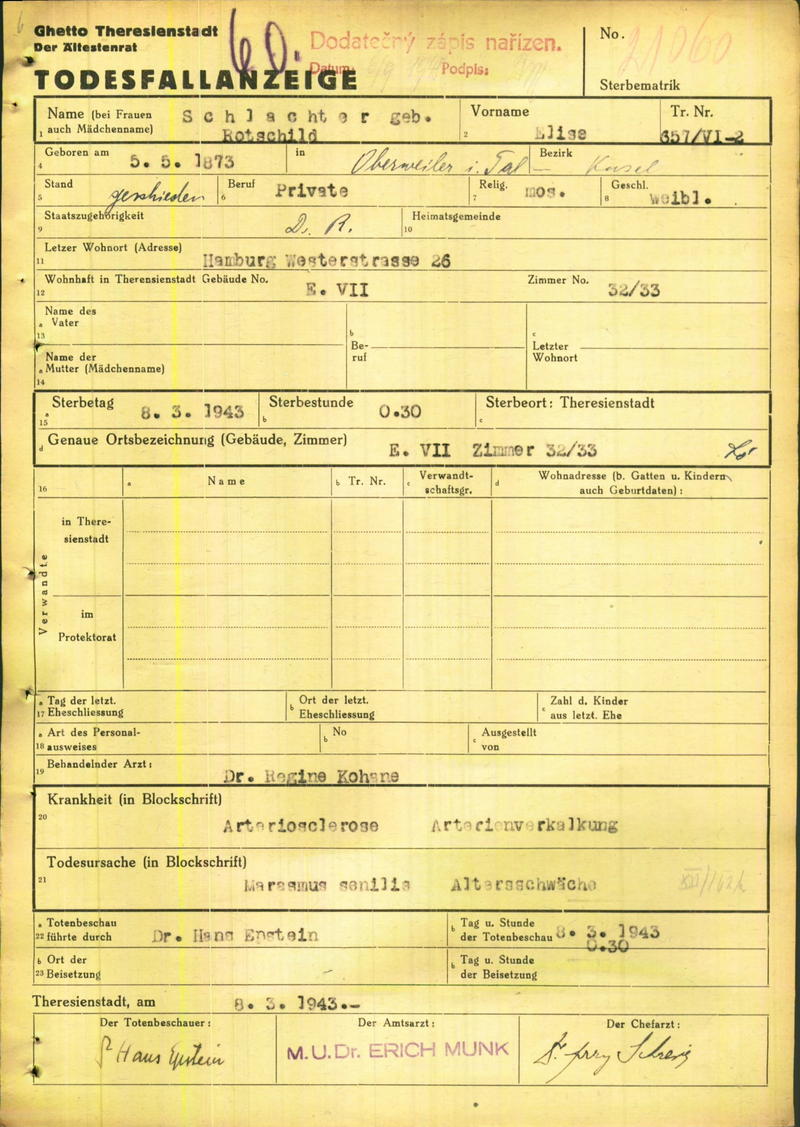 Ghetto Theresienstadt
Der Ältestenrat
TODESFALLANZEIGE
60.
Dodatečný zápis nařízen.
Datum: Podpis:
No.
21060
Sterbematrik
Name (bei Frauen auch Mädchenname) Schlachter geb. Rotschild
1
Vorname Elise
2
Tr. Nr. 657/VI-2
Geboren am 5. 5. 1873 in Oberweiler i. Tal — Kusel Bezirk
4
Stand geschieden Beruf Private Relig. mos. Geschl. weibl.
5 6 7 8
Staatszugehörigkeit D. R. Heimatsgemeinde
9 10
Letzer Wohnort (Adresse)
11 Hamburg Westerstrasse 26
Wohnhaft in Theresienstadt Gebäude No. E. VII Zimmer No. 32/33
12
Name des
a Vater
13
b Beruf
c Letzter Wohnort
Name der
a Mutter (Mädchenname)
14
Sterbetag 8. 3. 1943 Sterbestunde 0.30 Sterbeort: Theresienstadt
a 15 b c
d Genaue Ortsbezeichnung (Gebäude, Zimmer) E. VII Zimmer 32/33
16 a Name b Tr. Nr. c Verwandtschaftsgr. d Wohnadresse (b. Gatten u. Kindern auch Geburtdaten):
Verwandte
in Theresienstadt
im Protektorat
a Tag der letzt.
17 Eheschliessung
b Ort der letzt. Eheschliessung
c Zahl d. Kinder aus letzt. Ehe
a Art des Personal-
18 ausweises
b No
c Ausgestellt von
Behandelnder Arzt:
19 Dr. Regine Kohane
Krankheit (in Blockschrift)
20 Arteriosclerose Arterienverkalkung
Todesursache (in Blockschrift)
21 Marasmus senilis Altersschwäche
a Totenbeschau
22 führte durch Dr. Hans Epstein
b Tag u. Stunde der Totenbeschau 8. 3. 1943
0.30
b Ort der
23 Beisetzung
b Tag u. Stunde der Beisetzung
Theresienstadt, am 8. 3. 1943.-
Der Totenbeschauer: Der Amtsarzt: Der Chefarzt:
Dr Hans Epstein M.U.Dr. ERICH MUNK